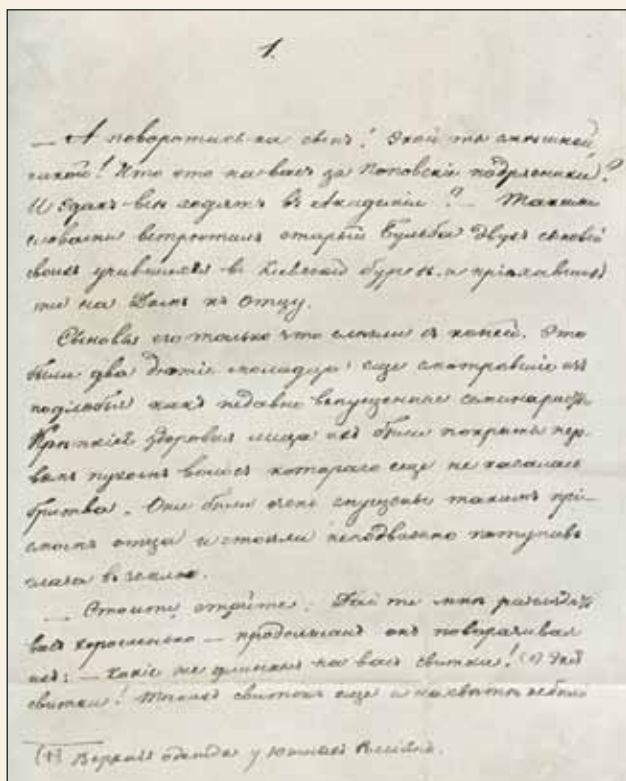 1.
— А поворотись-ка сынъ! Экой ты смѣшной
какой! Что это на васъ за поповскіе подрясники?
И эдакъ всѣ ходятъ въ Академіи? — Такими
словами встрѣтилъ старый Бульба двухъ сыновей
своихъ учившихся въ Кіевской бурсѣ и пріѣхавшихъ
уже на домъ къ отцу.
Сыновья его только что слѣзли съ коней. Это
были два дюжіе молодца, еще смотрѣвшіе изъ
подлобья какъ недавно выпущенные семинаристы.
Крѣпкія здоровыя лица ихъ были покрыты пер-
вымъ пухомъ волосъ котораго еще не касалась
бритва. Они были очень смущены такимъ прі-
емомъ отца и стояли неподвижно потупивъ
глаза въ землю.
— Стойте, стойте. Дайте мнѣ разглядѣть
васъ хорошенько — продолжалъ онъ поворачивая
ихъ: — какіе же длинныя на васъ свитки! (1) Экія
свитки! Такихъ свитокъ еще и на свѣтѣ не было
(1) Верхняя одежда у южныхъ Россіянъ.